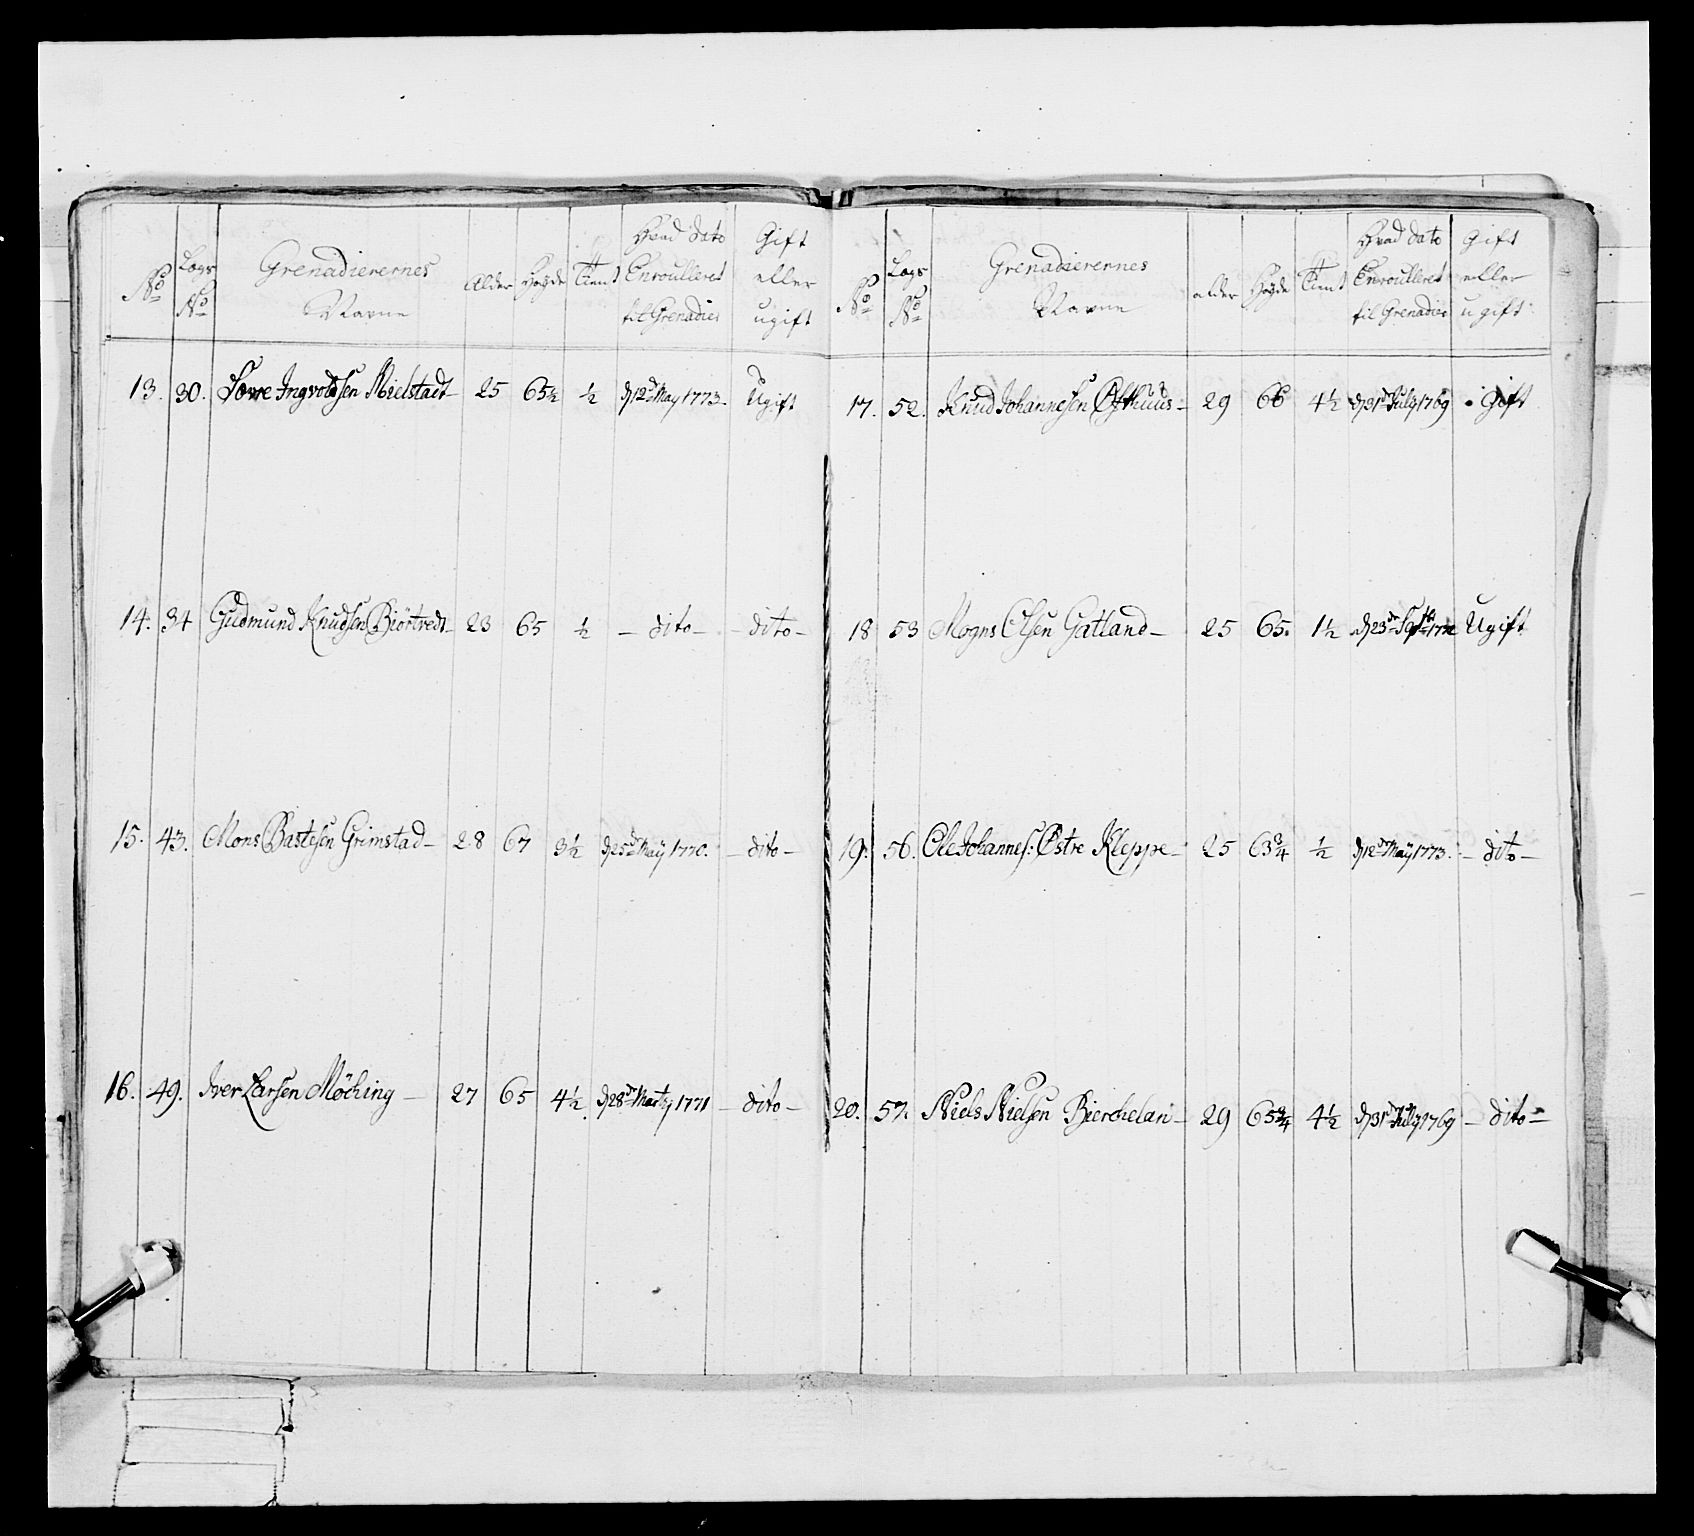 No
Lægs No
Grenadierernes Navne
Alder
Høyde
Tient
Hvad Dato Enroulleret til Grenadier
Gift eller ugift
13. 30. Ingvoldsen Mielstadt 25 65½ ½ d 12 May 1773. Ugift
14. 34 Gudmund Knudsen Biørtvedt 23 65 ½ dito dito
15. 43. Mons Bastesen Grimstad 28 67 3½ d 25 Maÿ 1770. dito
16. 49. Iver Larsen Møching 27 65 4½ d 28 Marty 1771 dito
No
Lægs No
Grenadierernes Navne
alder
Høyde
Tient
Hvad Dato Enroulleret til Grenadier
Gift eller ugift
17. 52. Knud Johannesen Øfthuus 29 66 4½ d 31 July 1769 Gift
18 53 Mogns Olsen Gatland 25 65. 1½ d 23 Ugift
19. 56. Ole Johannes: Østre Kleppe 25 63¾ ½ d 12 Maÿ 1773. dito
20. 57. Niels Nielsen Bierchelan 29 65¾ 4½ d 31 July 1769 dito